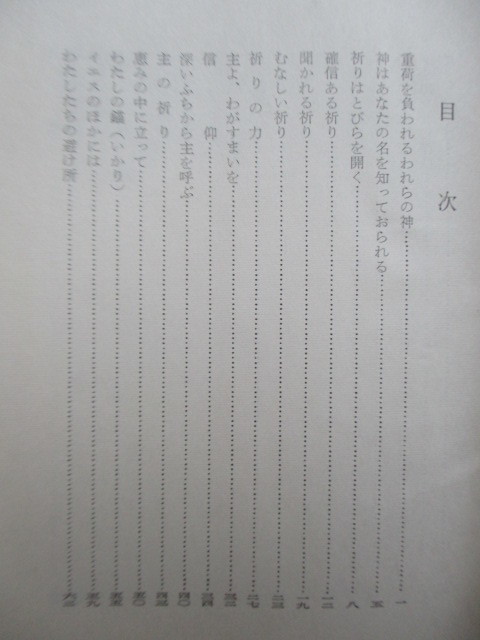 目次
重荷を負われるわれらの神……一
神はあなたの名を知っておられる……五
祈りはとびらを開く……八
確信ある祈り……一三
聞かれる祈り……一九
むなしい祈り……二三
祈りの力……二七
主よ、わがすまいを……三三
信仰……三四
深いふちから主を呼ぶ……四〇
主の祈り……四三
恵みの中に立って……五〇
わたしの錨（いかり）……五五
イエスのほかには……五九
わたしたちの避け所……六三